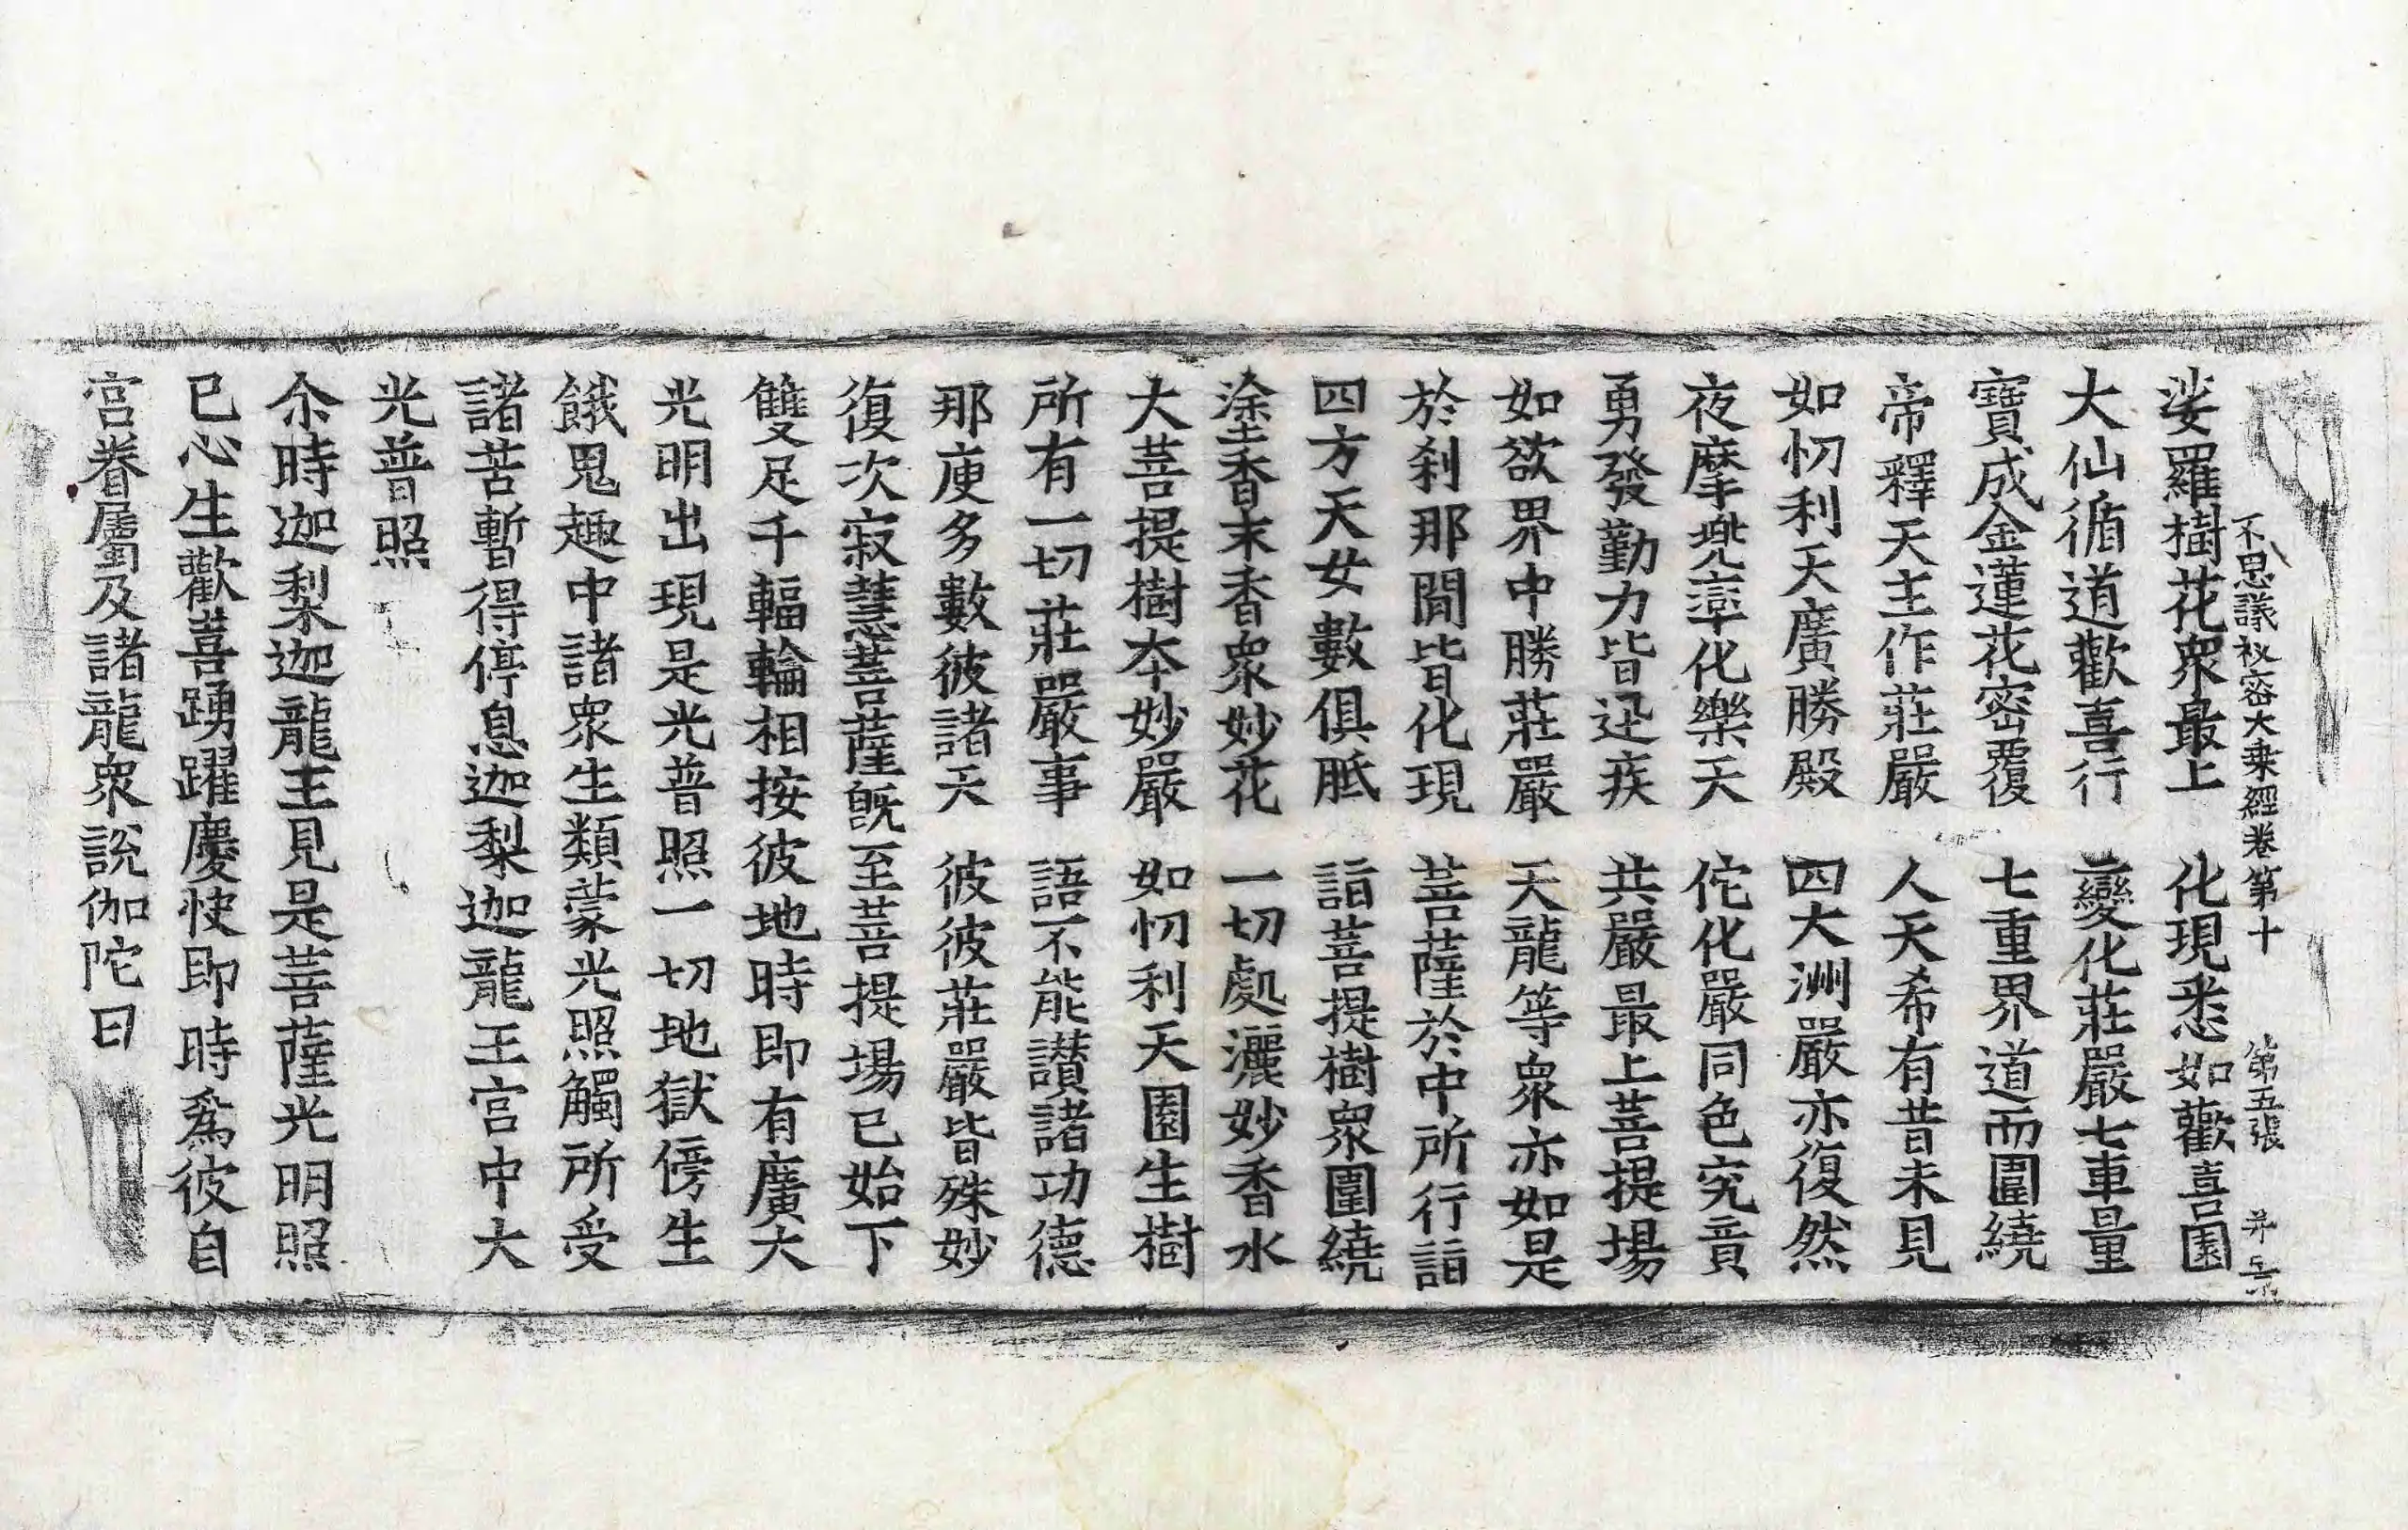 不思議秘密大乗經卷第十 第五張
娑羅樹花衆最上 化現悉如歡喜園
大仙循道歡喜行 變化莊嚴七車量
寶成金蓮花密覆 七重界道而圍繞
帝釋天主作莊嚴 人天希有昔未見
如忉利天廣勝殿 四大洲嚴亦復然
夜摩兜率化樂天 佗化嚴同色究竟
勇發勤力皆迅疾 共嚴最上菩提場
如欲界中勝莊嚴 天龍等衆亦如是
於刹那間皆化現 菩薩於中所行詣
四方天女數俱胝 詣菩提樹衆圍繞
塗香末香衆妙花 一切處灑妙香水
大菩提樹夲妙嚴 如忉利天園生樹
所有一切莊嚴事 語不能讃諸功德
那庾多數彼諸天 彼彼莊嚴皆殊妙
復次寂慧菩薩旣至菩提場已始下
雙足千輻輪相按彼地時即有廣大
光明出現是光普照一切地獄傍生
餓鬼趣中諸衆生類蒙光照觸所受
諸苦暫得停息迦梨迦龍王宮中大
光普照
尒時迦梨迦龍王見是菩薩光明照
已心生歡喜踴躍慶快即時爲彼自
宮眷屬及諸龍衆說伽陀曰